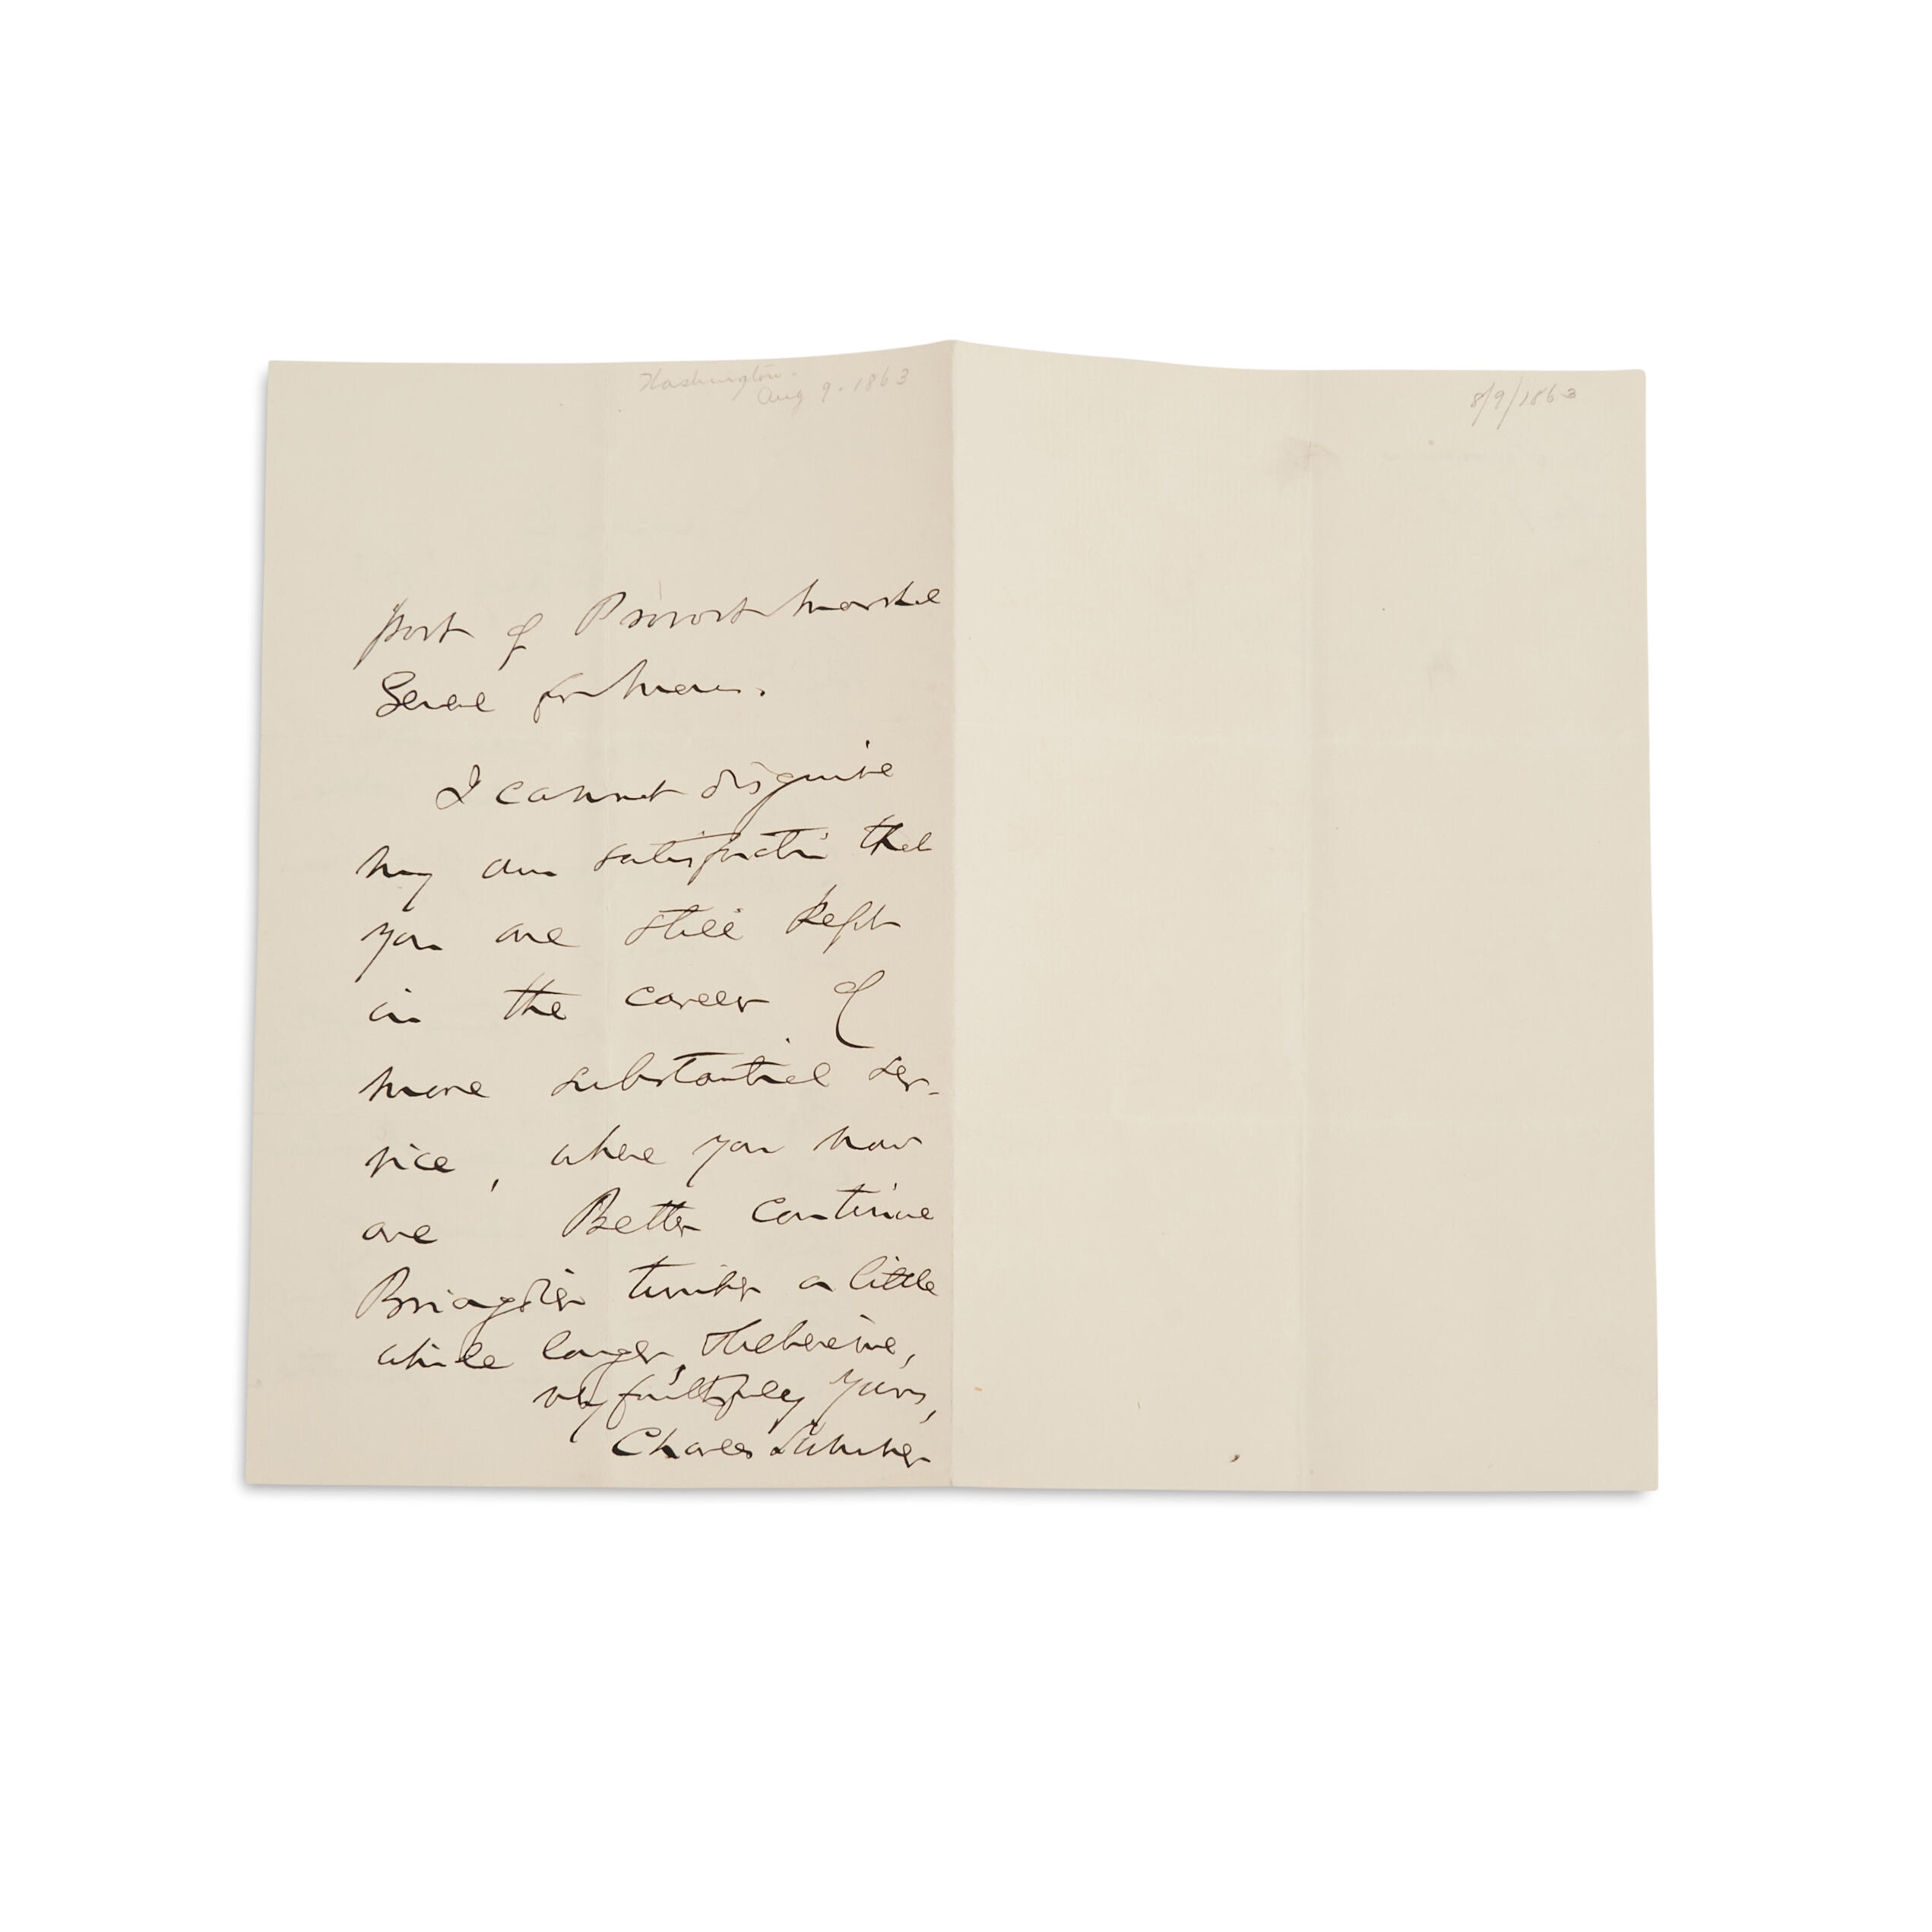 Washington.
Aug 9. 1863
8/9/1863
post of Provost Marshal
General for Mass.
I cannot disguise
my own satisfaction that
you are still kept
in the career of
more substantial ser-
vice, where you now
are Better continue
Brigadier timber a little
while longer, & believe me,
very faithfully Yours,
Charles Sumner